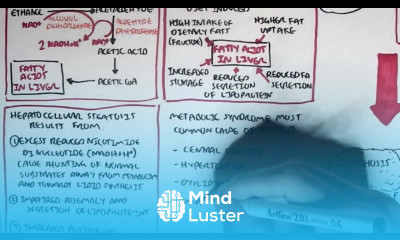 ETHANOL
ACETALDEHYDE
NAD+
ALCOHOL
DEHYDROGENASE
ALDEHYDE
DEHYDROGENASE
2 NADH+H+
NAD+
ACETIC ACID
FATTY
ACIDS
IN LIVER
ACETIC COA
DIET INDUCED
HIGH INTAKE OF
DIETARY FATS
(FRUCTOSE)
HIGHER FAT
UPTAKE
FATTY ACIDS
IN LIVER
INCREASED
STORAGE
REDUCED
SECRETION
OF LIPOPROTEIN
REDUCED FA
SECRETION
HEPATOCELLULAR STEATOSIS
RESULTS FROM
① EXCESS REDUCED NICOTIMIDE
DINUCLEOTIDE (NADH+H+)
CAUSE SHUNTING OF NORMAL
SUBSTRATES AWAY FROM METABOLISM
AND TOWARDS LIPID SYNTHESIS
② IMPAIRED ASSEMBLY AND
SECRETION OF LIPOPROTEINS
③ INCREASED
METABOLIC SYNDROME MOST
COMMON CAUSE OF
- CENTRAL
- HYPERTENS
- DYSLIPID
Mind
Luster